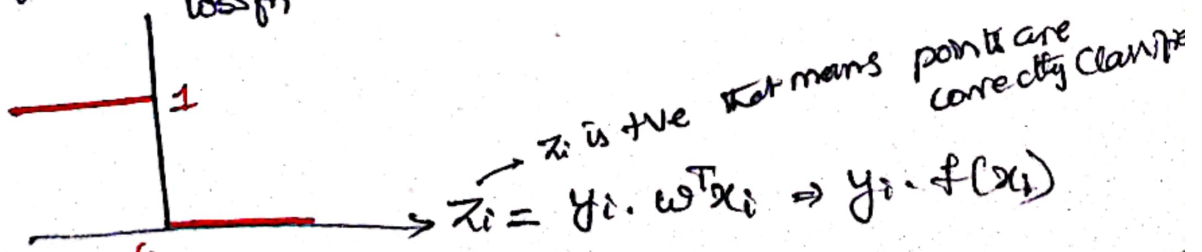 loss fn
1
zi is +ve that means points are
correctly
Zi = yi. wᵀxi ⇒ yi. f(xi)